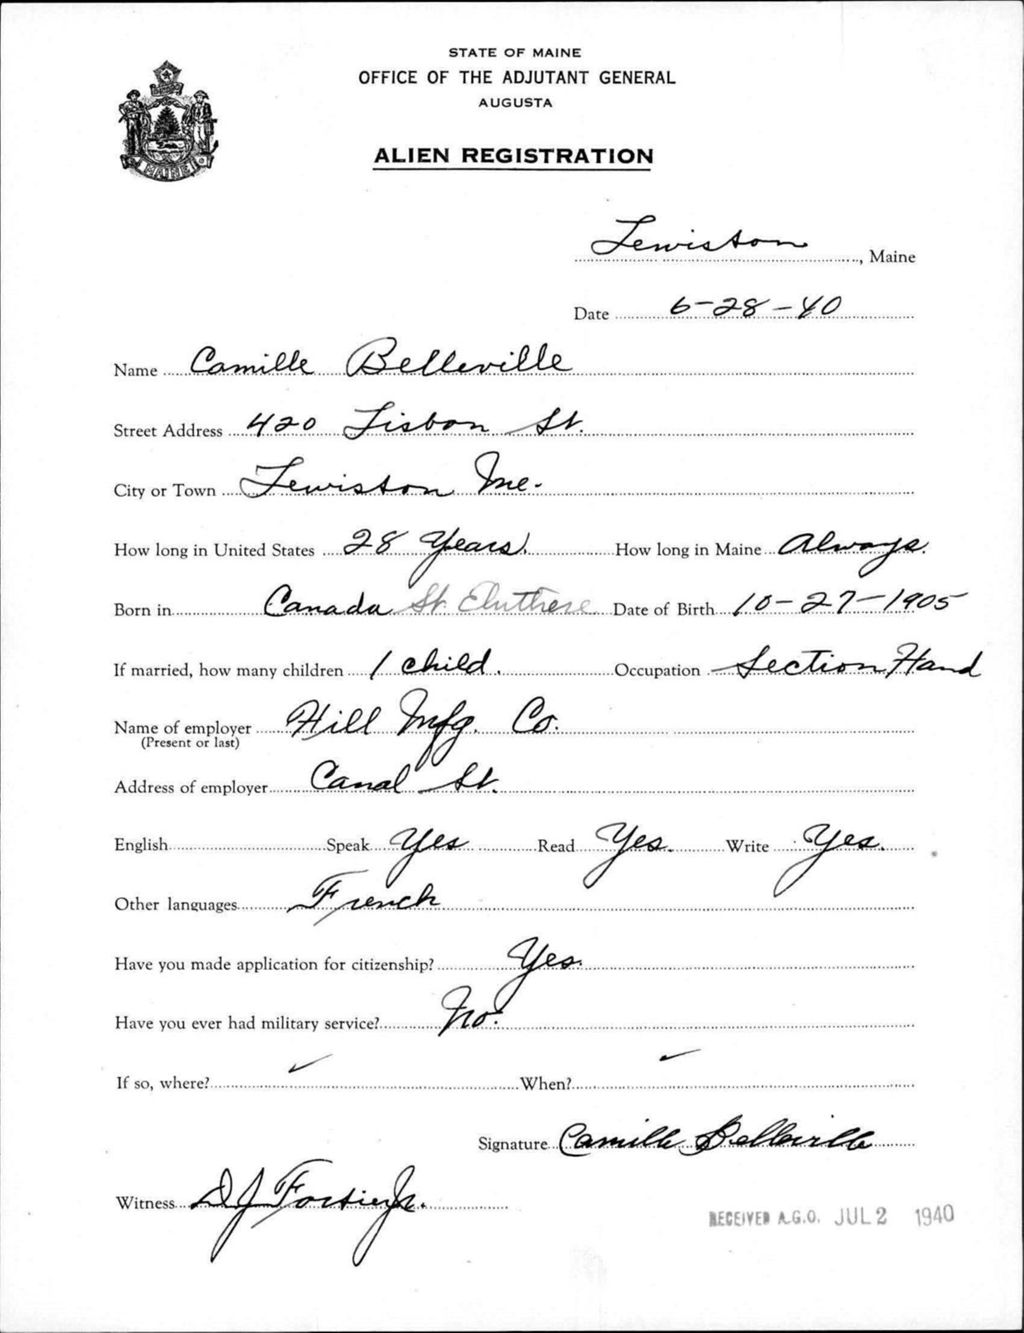 STATE OF MAINE
OFFICE OF THE ADJUTANT GENERAL
AUGUSTA
ALIEN REGISTRATION
MAINE
Lewiston, Maine
Date 6-28-40
Name Camille Belleville
Street Address 420 Lisbon St.
City or Town Lewiston Me.
How long in United States 28 Years. How long in Maine Always.
Born in Canada St Eluthere Date of Birth 10-27-1905
If married, how many children 1 child. Occupation Section Hand
Name of employer Hill Mfg. Co.
(Present or last)
Address of employer Canal St.
English Speak Yes Read Yes. Write Yes.
Other languages French
Have you made application for citizenship? Yes.
Have you ever had military service? No.
If so, where? When?
Signature Camille Belleville
Witness D J Fortier Jr.
RECEIVED A.G.O. JUL 2 1940